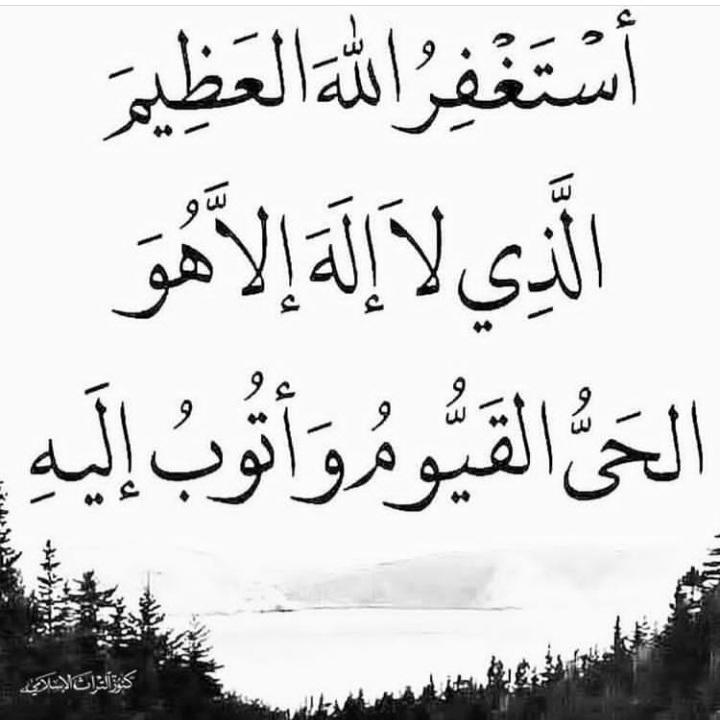 أَسْتَغْفِرُ اللهَ العَظِيمَ
الَّذِي لاَ إِلَهَ إِلاَّ هُوَ
الحَيُّ القَيُّومُ وَأَتُوبُ إِلَيهِ
كنوز التراث الإسلامي